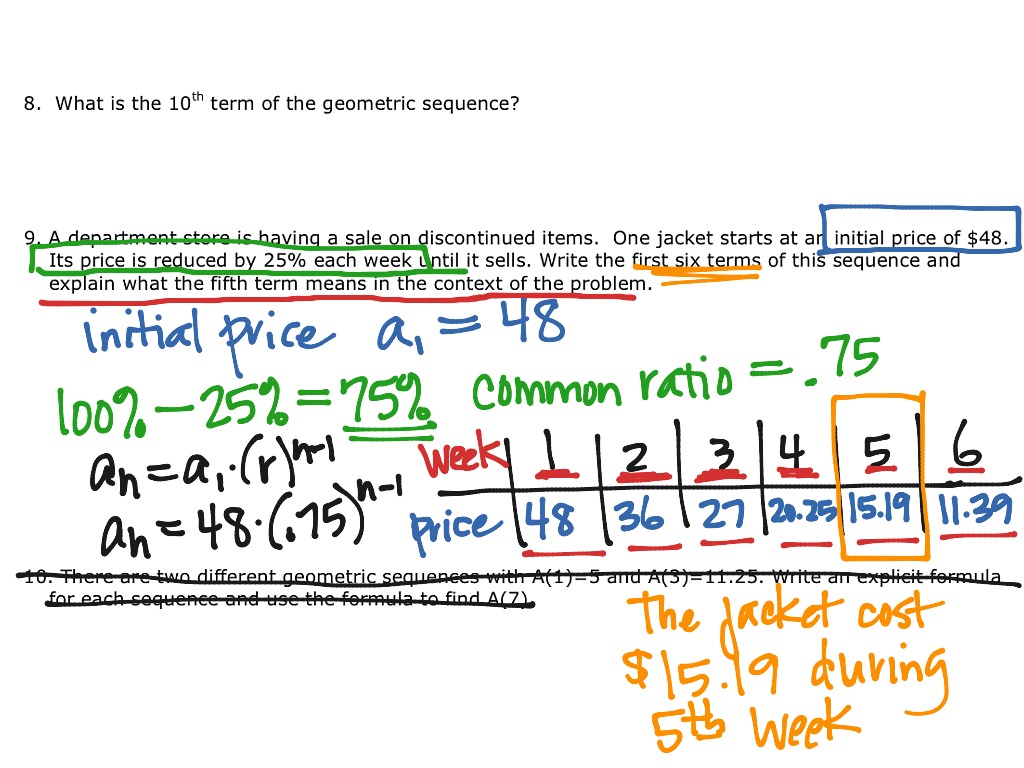 8. What is the 10th term of the geometric sequence?
9. A department store is having a sale on discontinued items. One jacket starts at an initial price of $48.
Its price is reduced by 25% each week until it sells. Write the first six terms of this sequence and
explain what the fifth term means in the context of the problem.
initial price a₁ = 48
100% - 25% = 75% common ratio = .75
aₙ = a₁·(r)ⁿ⁻¹
week 1 2 3 4 5 6
aₙ = 48·(.75)ⁿ⁻¹
price 48 36 27 20.25 15.19 11.39
10. There are two different geometric sequences with A(1)=5 and A(3)=11.25. Write an explicit formula
for each sequence and use the formula to find A(7).
The jacket cost
$15.19 during
5th week